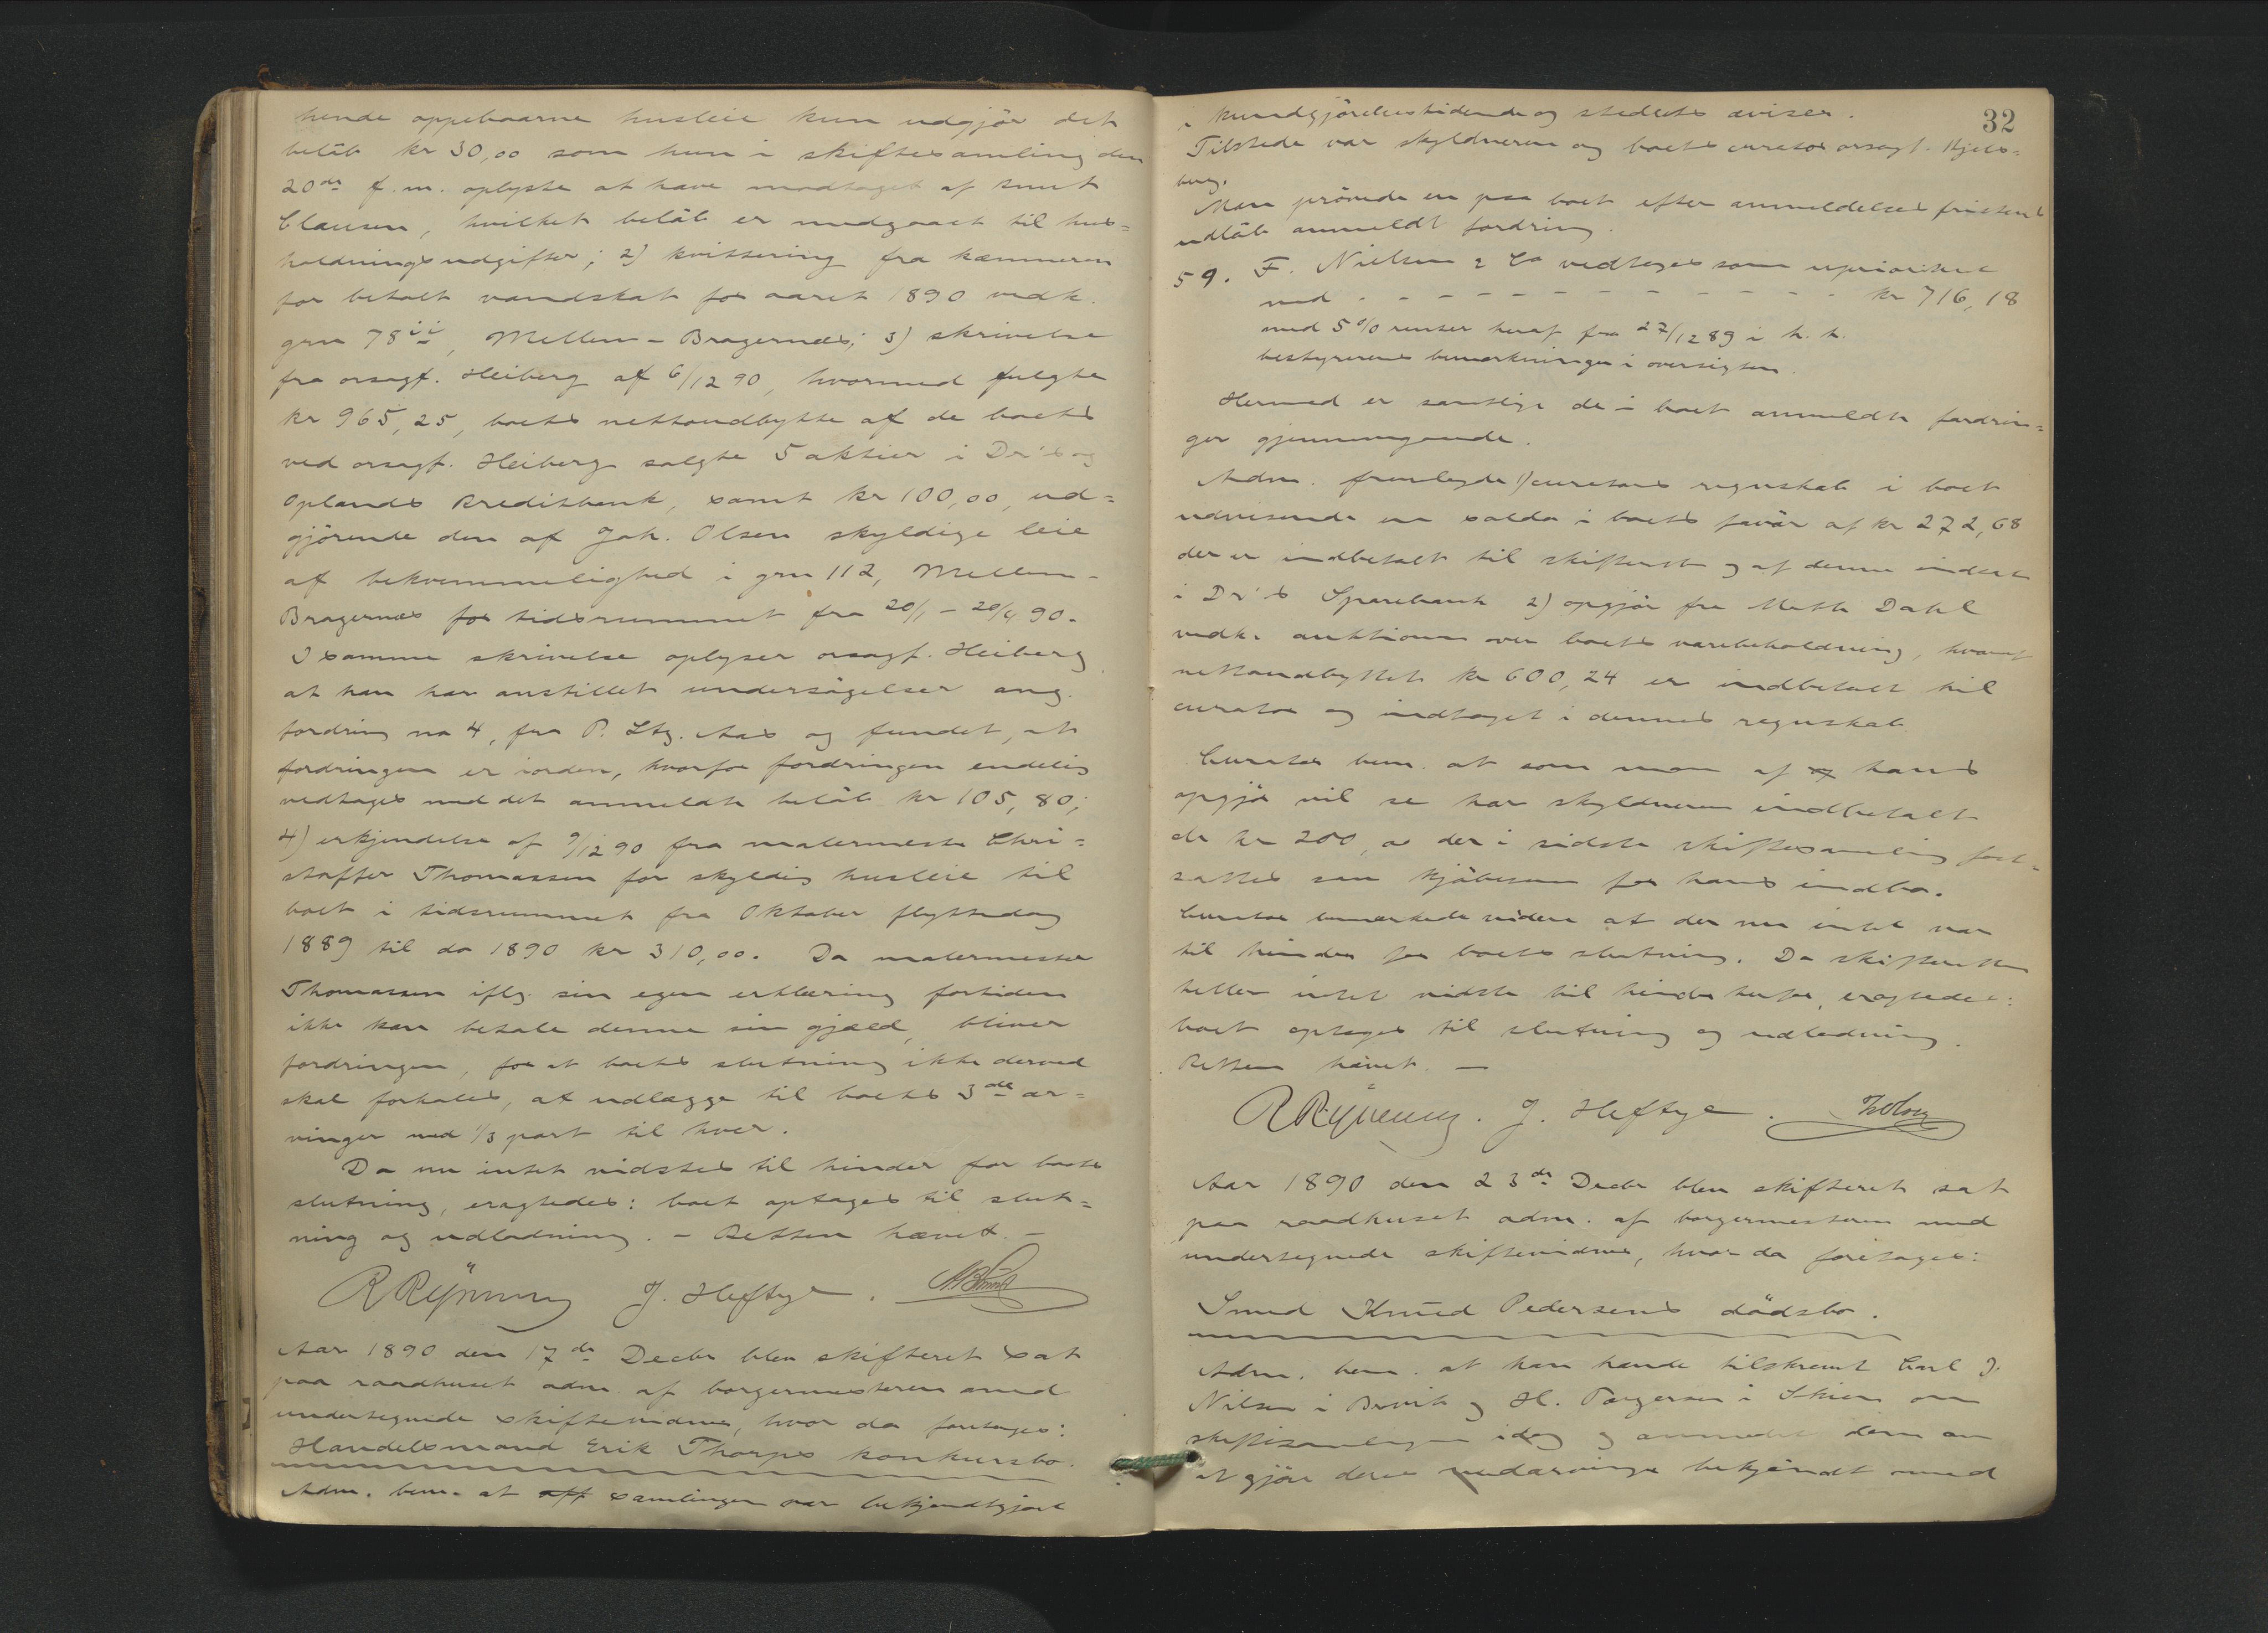 hende oppebaarne husleie kun udgjör det
belöb kr 30,00 som hun i skiftesamling den
20de f.m. oplyste at have modtaget af smed
Clausen, hvilket belöb er medgaaet til hus=
holdningsudgifter; 2) kvittering fra kæmneren
for betalt vandskat for aaret 1890 vedk.
grn 78ii, Mellem-Bragernæs; 3) skrivelse
fra orsagf. Heiberg af 6/12 90, hvormed fulgte
kr 965,25, boets nettoudbytte af de boets
ved orsagf. Heiberg solgte 5 aktier i Dr's og
Oplands Kreditbank, samt kr 100,00, ud=
gjörende den af Joh. Olsen skyldige leie
af bekvemmelighed i grn 112, Mellem-
Bragernæs for tidsrummet fra 20/1 - 20/4 90.
I samme skrivelse oplyser orsagf. Heiberg
at han har anstillet undersögelser ang.
fordring no 4, fra P. Ltz. Aas og fundet, at
fordringen er iorden, hvorfor fordringen endelig
vedtages med det anmeldte belöb kr 105,80;
4) erkjendelse af 9/12 90 fra malermester Chri=
stoffer Thomassen for skyldig husleie til
boet i tidsrummet fra Oktober flyttedag
1889 til do 1890 kr 310,00. Da malermester
Thomassen iflg. sin egen erklæring fortiden
ikke kan betale denne sin gjæld, bliver
fordringen, for at boets slutning ikke derved
skal forhales, at udlægge til boets 3de ar=
vinger med 1/3 part til hver.
Da nu intet vidstes til hinder for boets
slutning, eragtedes: boet optages til slut=
ning og udlodning. - Retten hævet. -
R Rÿnning J. Heftye.
Aar 1890 den 17de Decbr blev skifteret sat
paa raadhuset adm. af borgermesteren med
undertegnede skiftevidner, hvor da foretoges:
Handelsmand Erik Thorps konkursbo.
Adm. bem. at samlingen var bekjendtgjort
32
i Kundgjörelsestidende og stedets aviser.
Tilstede var skyldneren og boets curator orsagf. Kjels=
berg.
Man prövede en paa boet efter anmeldelsesfristens
udlöb anmeldt fordring.
59. F. Nielsen & Co vedtoges som uprioritert
med - - - - - - - - - - - - kr 716,18
med 5% renter heraf fra 27/12 89 i h. t.
bestyrerens bemærkninger i oversigten.
Hermed er samtlige de i boet anmeldte fordrin=
ger gjennemgaaede.
Adm. fremlagde 1) curators regnskab i boet
udvisende en saldo i boets favör af kr 272,68
der er indbetalt til skifteret og af denne indsat
i Dr's Sparebank 2) opgjör fra Dahl
vedk. auktionen over boets varebeholdning, hvoraf
nettoudbyttet kr 600,24 er indbetalt til
curator og indtaget i dennes regnskab.
Curator bem. at som man af hans
opgjör vil se har skyldneren indbetalt
de kr 200,00 der i sidste skiftesamling fast=
sattes som kjöbesum for hans indbo.
Curator bemærkede videre at der nu intet var
til hinder for boets slutning. Da skifteretten
heller intet vidste til hinder herfor, eragtedes:
boet optages til slutning og udlodning.
Retten hævet. -
R Rÿnning. J. Heftye.
Aar 1890 den 23de Decbr blev skifteret sat
paa raadhuset adm. af borgermesteren med
undertegnede skiftevidner, hvor da foretoges:
Smed Knud Pedersens dödsbo.
Adm. bem. at han havde tilskrevet Carl J.
Nilsen i Brevik og H. Torgersen i Skien om
skiftesamlingen idag og anmodet dem om
at gjöre deres medarvinger bekjendt med